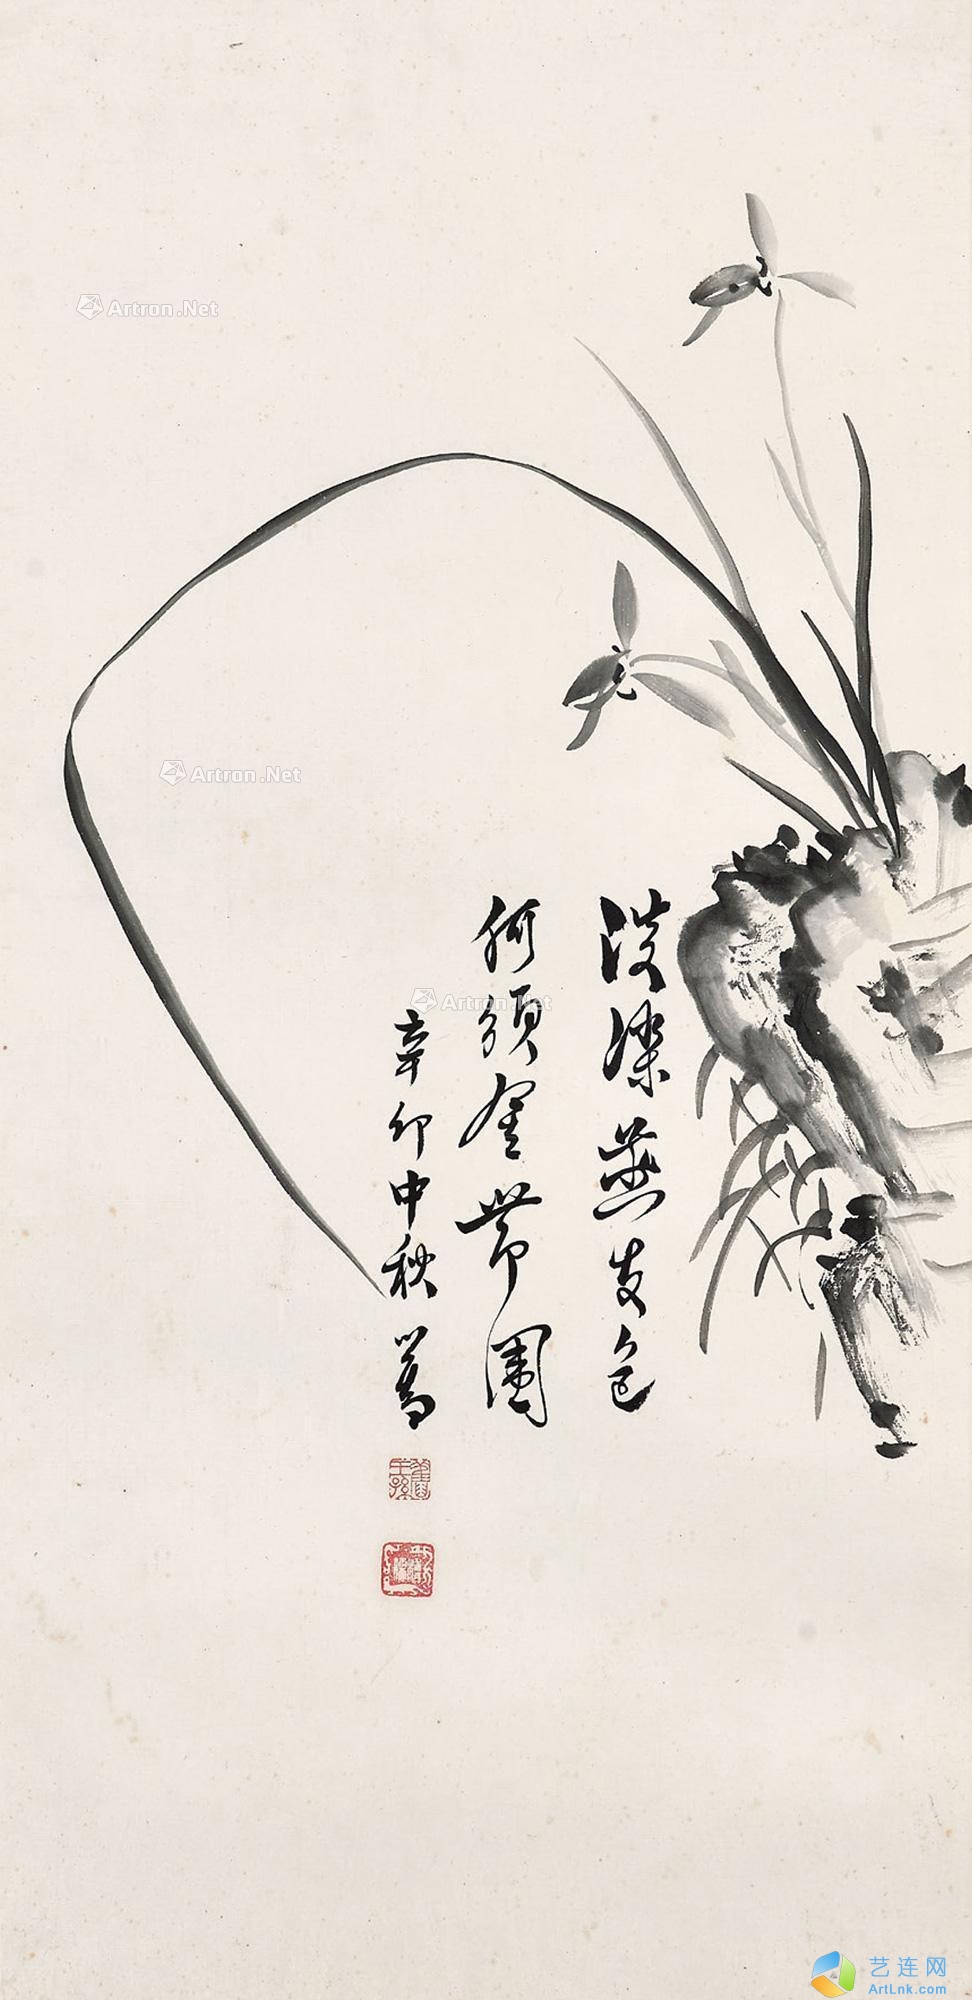 Artron.Net
Artron.Net
Artron.Net
淡染燕支色
何須金帶圍
辛卯中秋
舊王孫
艺连网
ArtLnk.com